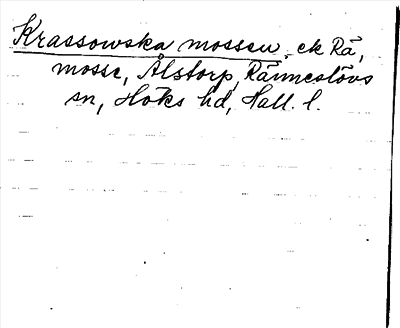 Krassowska mossen, ek Rå,
mosse, Ålstorp, Ränneslövs
sn, Höks hd, Hall. l.